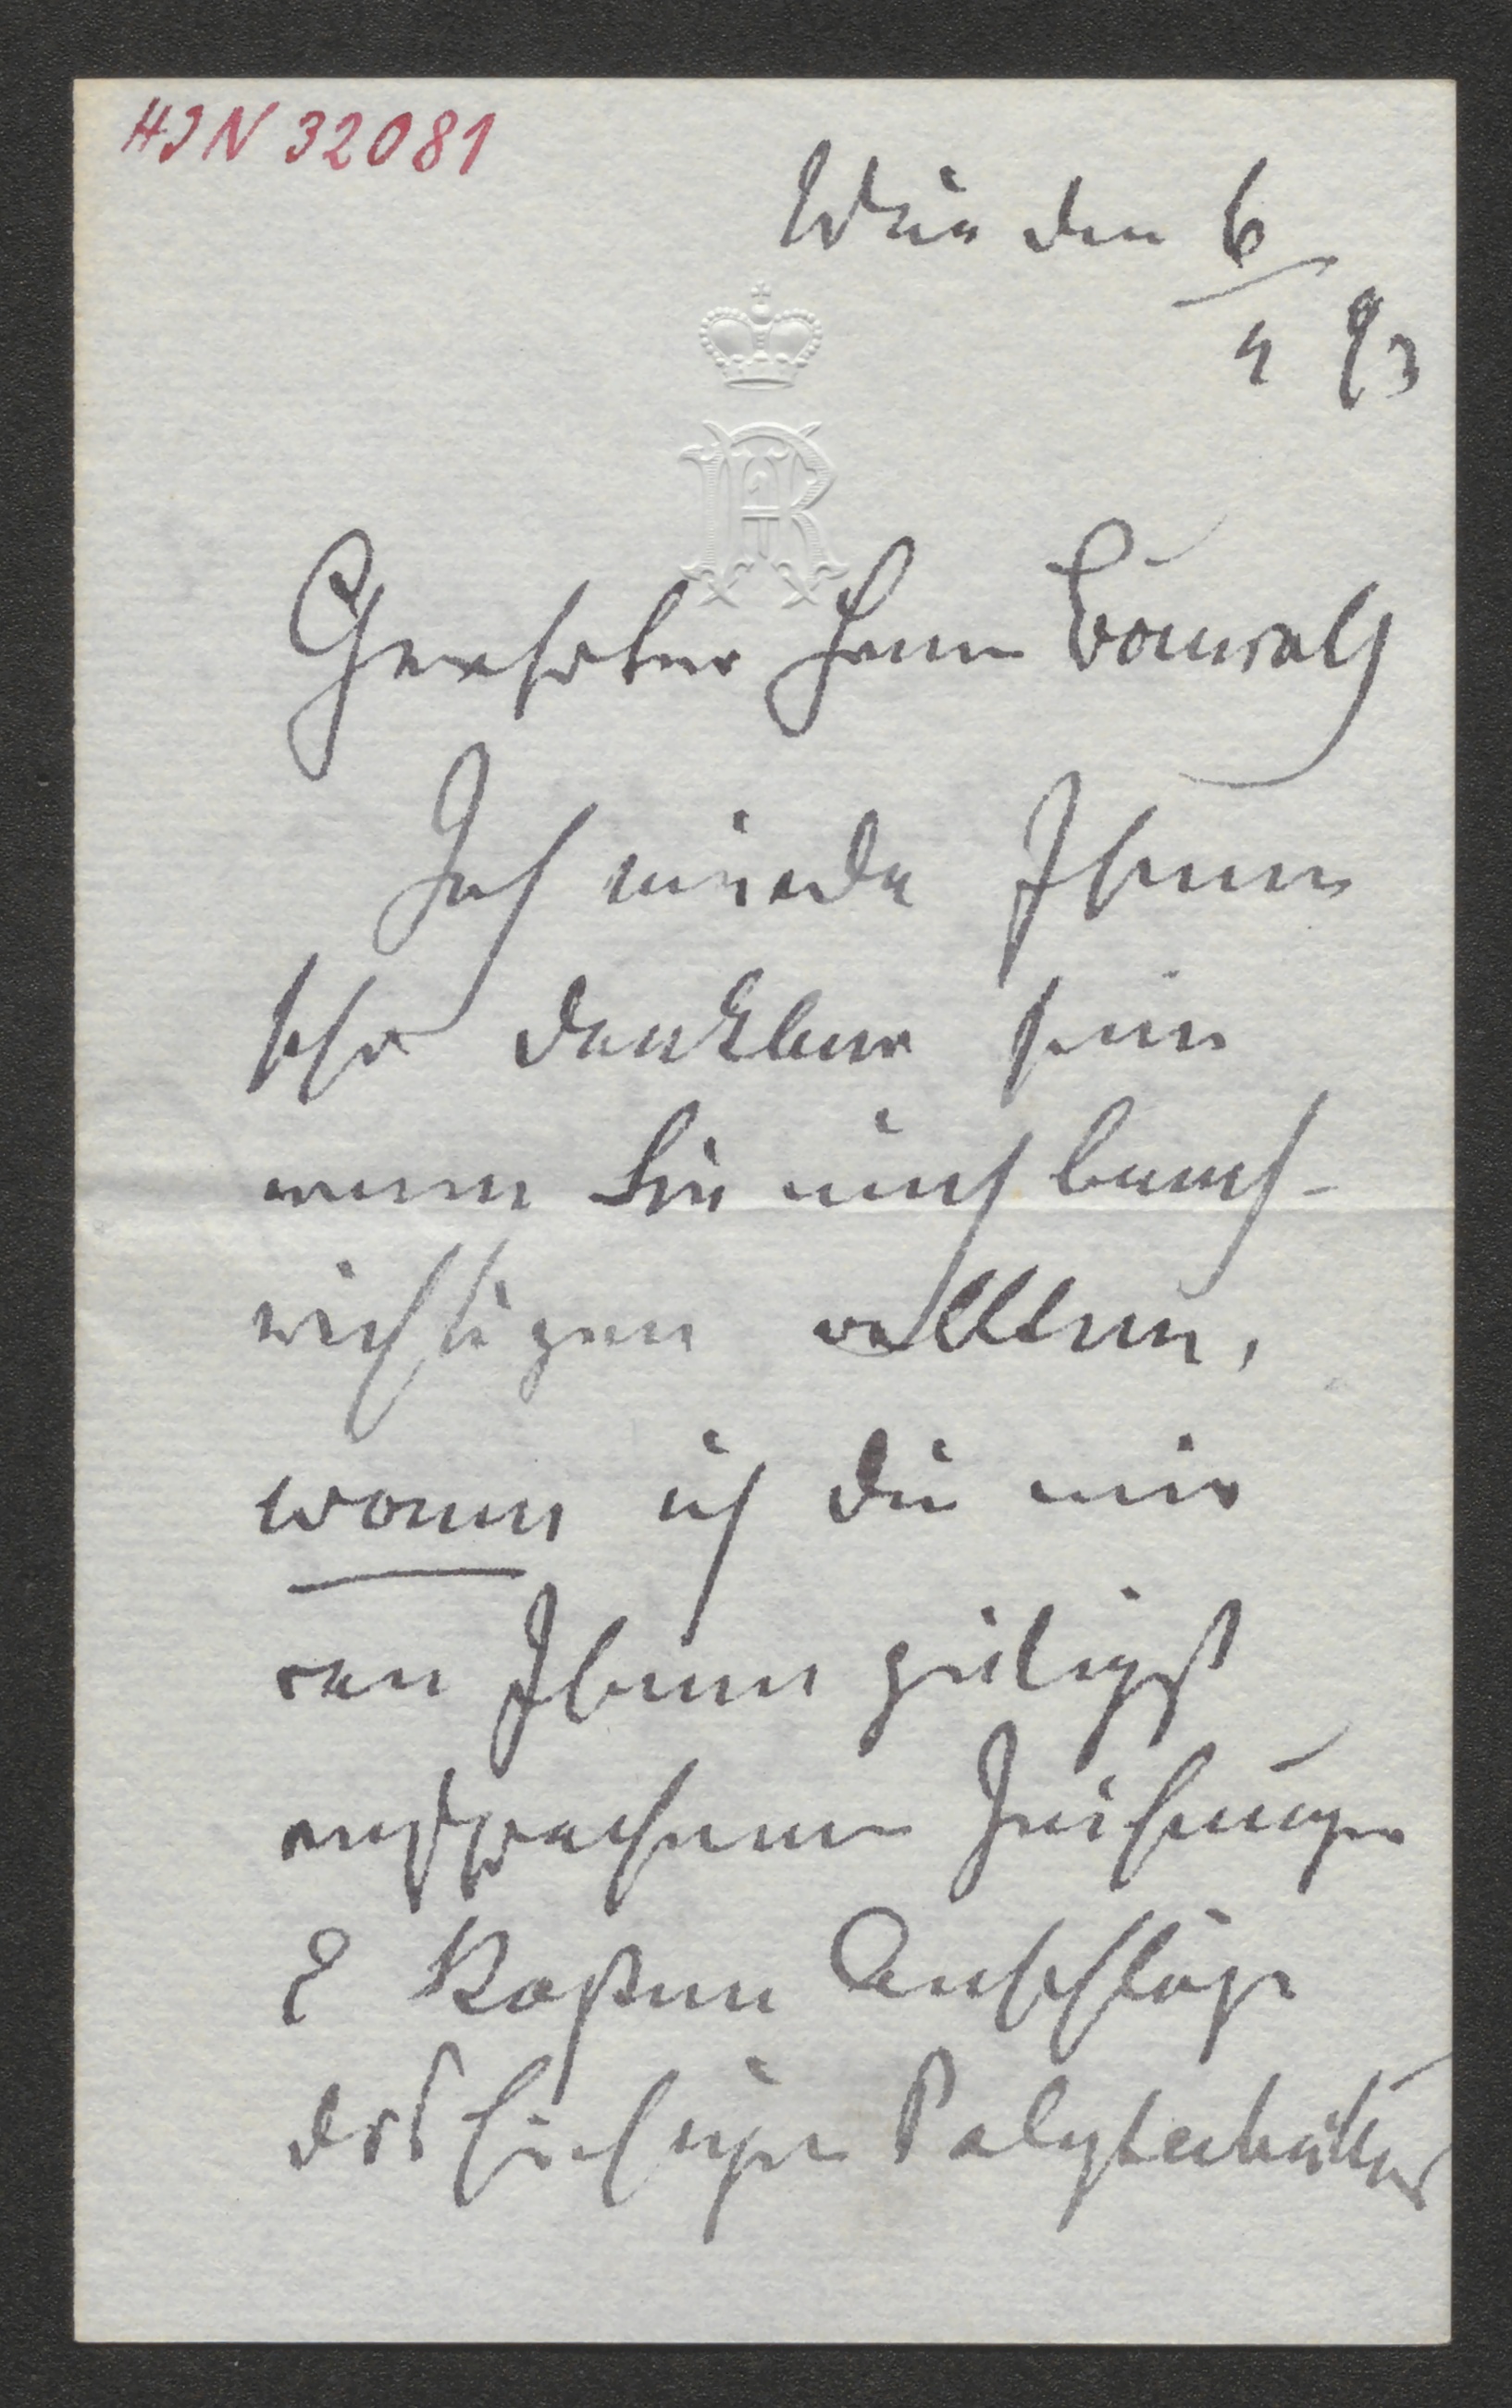 HIN 32081
Wien den 6
4 93
AR
Geehrter Herr Baurath
Ich würde Ihnen
sehr dankbar sein
wenn Sie mich benach-
richtigen wollten,
wann ich die mir
von Ihnen gütigst
versprochenen Zeichnungen
& Kosten Anschläge
des hiesigen